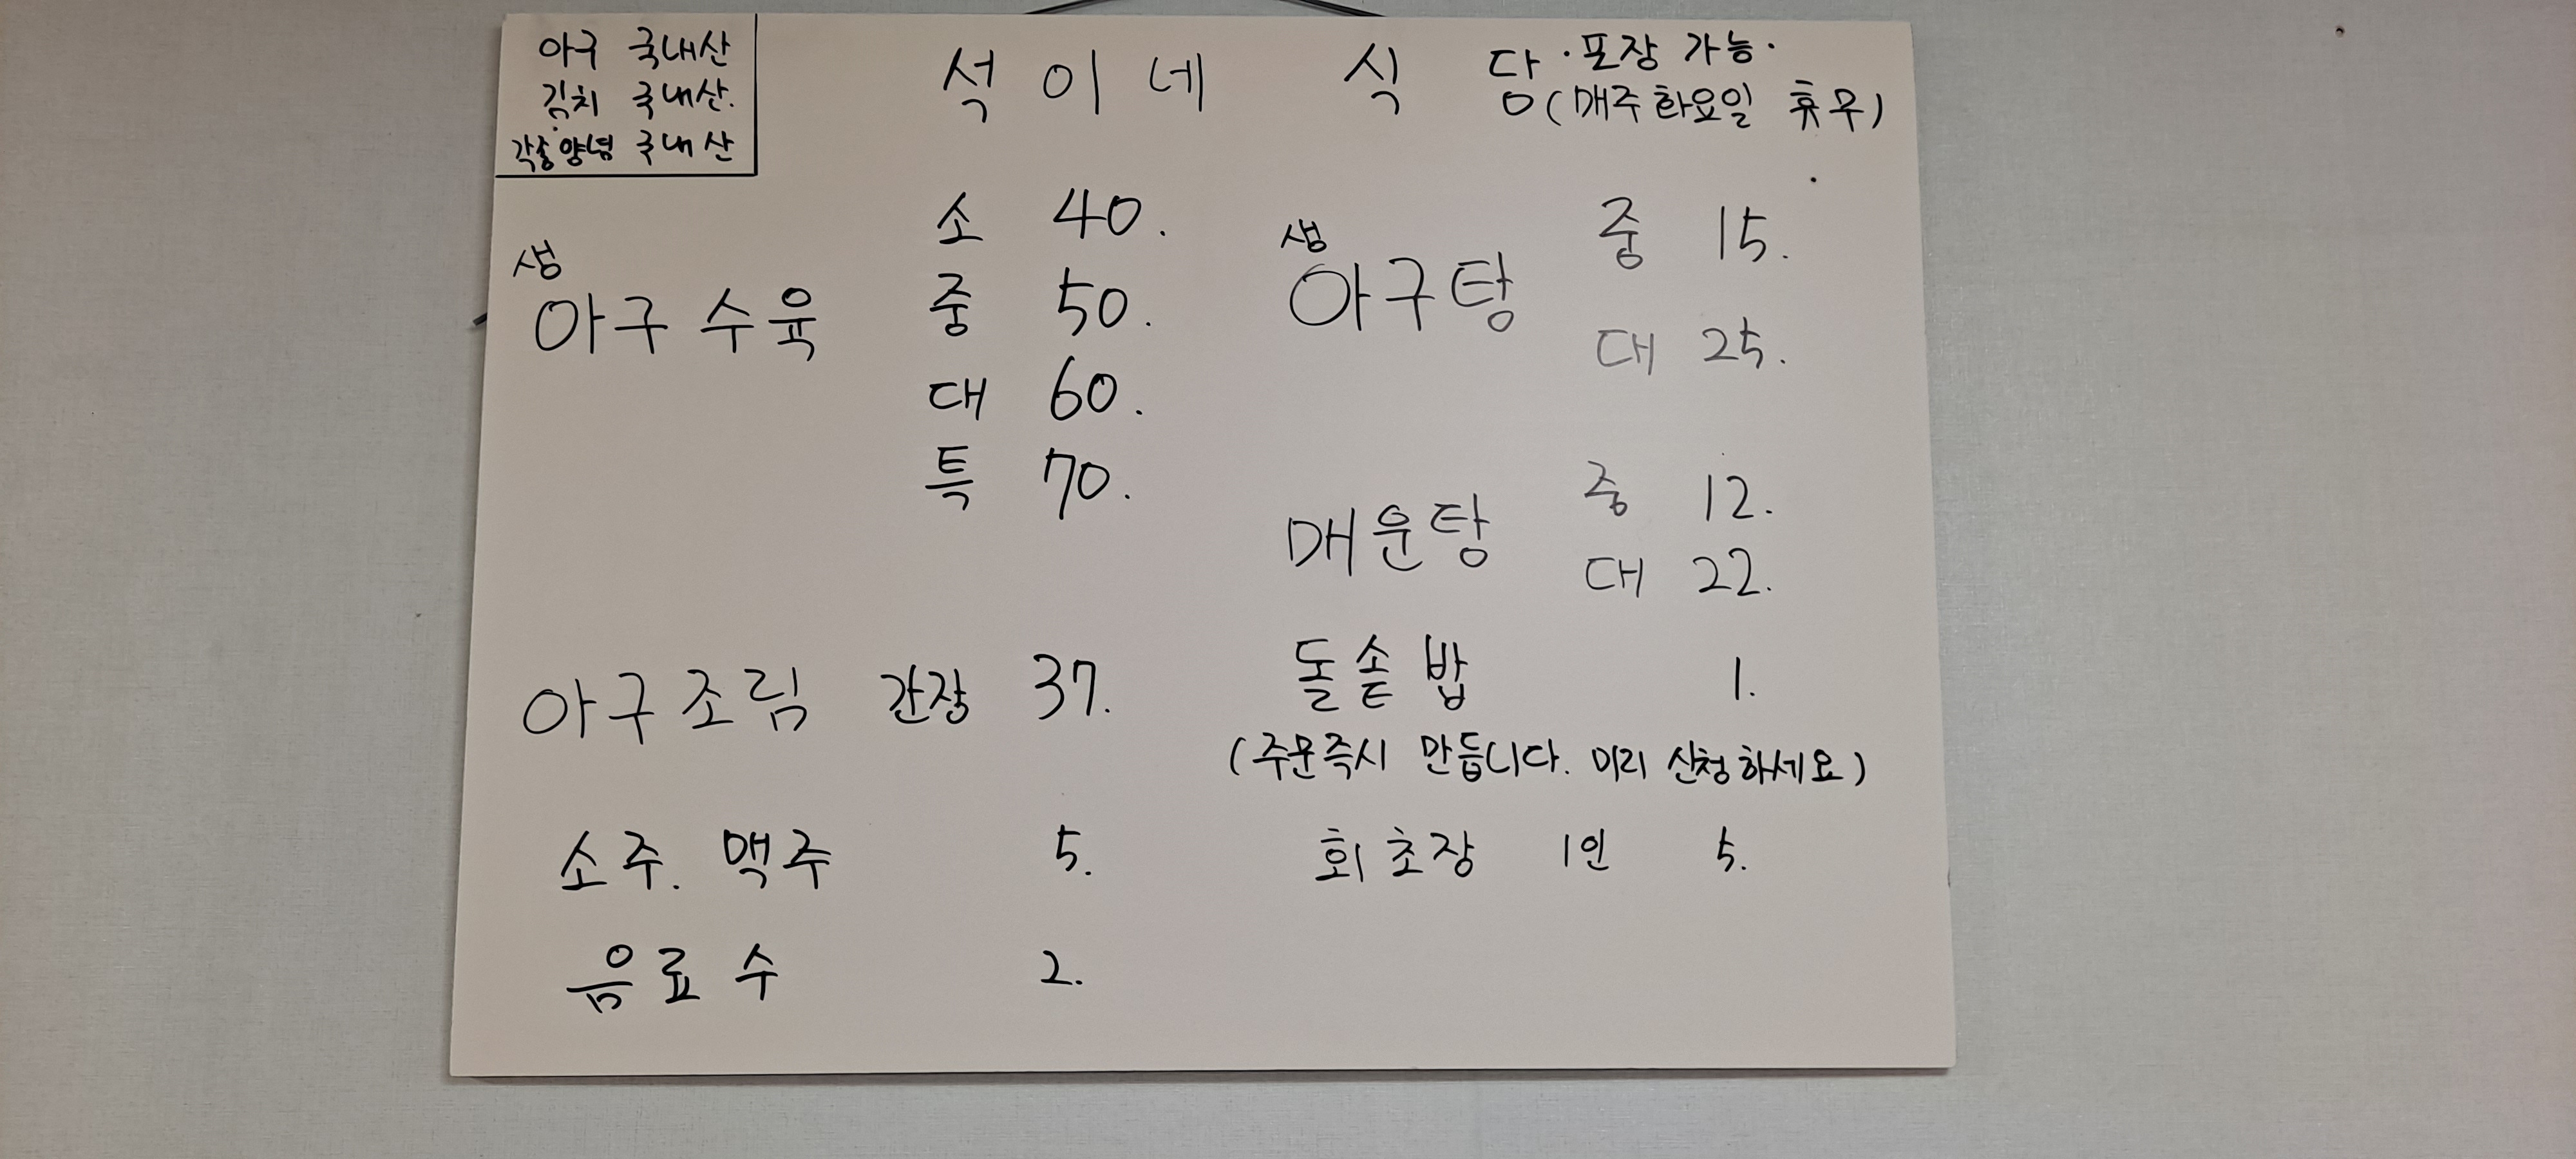 아구 국내산
김치 국내산.
각종양념 국내산
석이네 식당
·포장 가능·
(매주화요일 휴무)
생
아구수육
소 40.
중 50.
대 60.
특 70.
생
아구탕
중 15.
대 25.
매운탕
중 12.
대 22.
아구조림 간장 37.
돌솥밥 1.
(주문즉시 만듭니다. 미리 신청하세요)
소주. 맥주 5.
회초장 1인 5.
음료수 2.